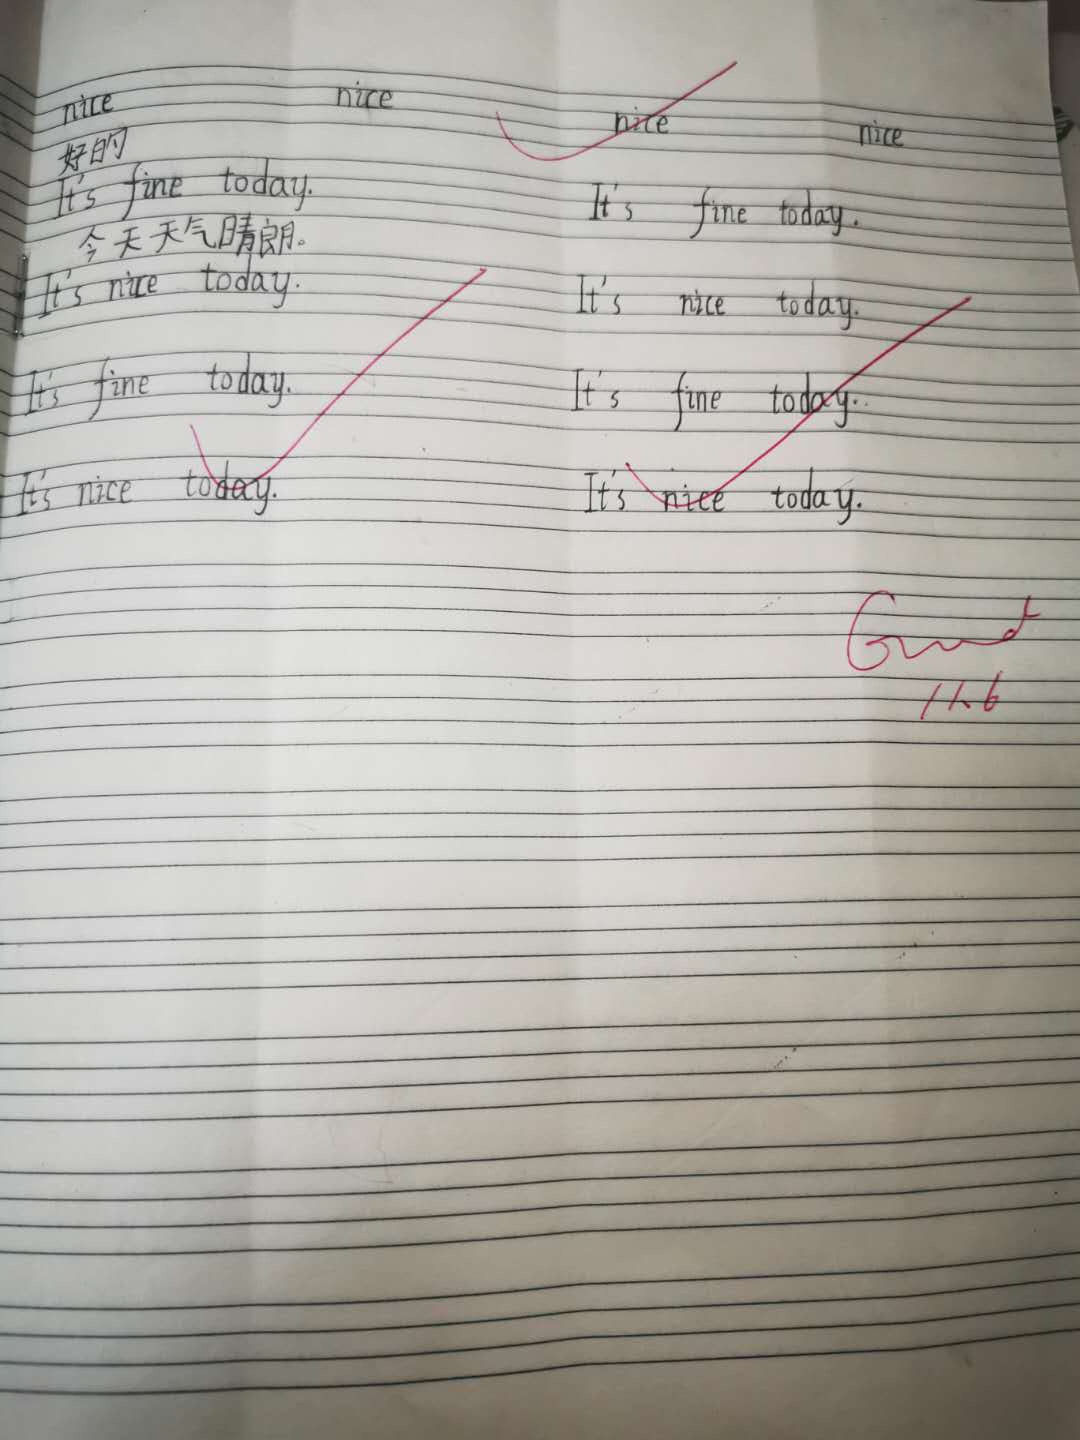 nice nice nice nice
好的
It's fine today. It's fine today.
今天天气晴朗。
It's nice today. It's nice today.
It's fine today. It's fine today..
It's nice today. It's nice today.
Good
11.6